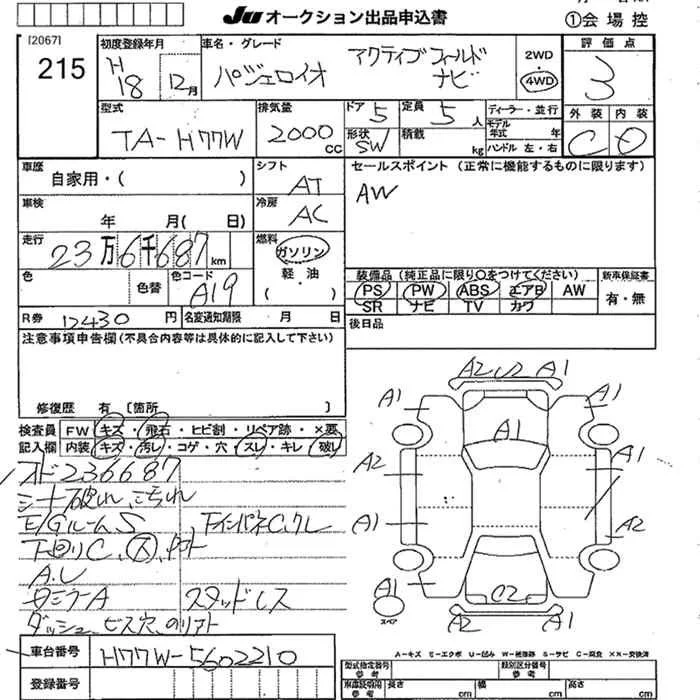 JU オークション出品申込書
①会場控
[2067]
215
初度登録年月
H 18 12月
車名・グレード
パジェロイオ
アクティブフィールド
ナビ
2WD
・
4WD
評価点
3
外装 内装
C D
型式
TA-H77W
排気量
2000 CC
ドア 5
定員 5人
形状 SW
積載 kg
ディーラー・並行
モデル年式 年
ハンドル 左・右
車歴
自家用・( )
シフト
AT
セールスポイント(正常に機能するものに限ります)
AW
車検
年 月( 日)
冷房
AC
走行
23万6千687km
燃料
ガソリン
軽・油
( )
色
色替
色コード
A19
装備品(純正品に限り○をつけてください)
PS PW ABS エアB AW
SR ナビ TV カワ
新車保証書
有・無
R券 12430円
名変通知期限 月 日
後日品
注意事項申告欄(不具合内容等は具体的に記入して下さい)
修復歴 有 [箇所 ]
検査員記入欄
FW キズ・飛石・ヒビ割・リペア跡・×要
内装 キズ・汚レ・コゲ・穴・スレ・キレ・破レ
236687
シート破れ、こもれ
E/GルームS
下回りC、
A.L
A
スタッドレス
ダッシュ、ビス穴、
A2 U2 A1
A1 A1
A1
A2 A1
A1 A2
A1
スペア
C2
A2 A1
A-キズ E-エクボ U-凹み W-補修跡 S-サビ C-腐食 XX-交換済
車台番号 H77W-5602210
登録番号
型式指定番号 参考
類別区分番号 参考
車庫証明用 参考
長さ cm
幅 cm
高さ cm